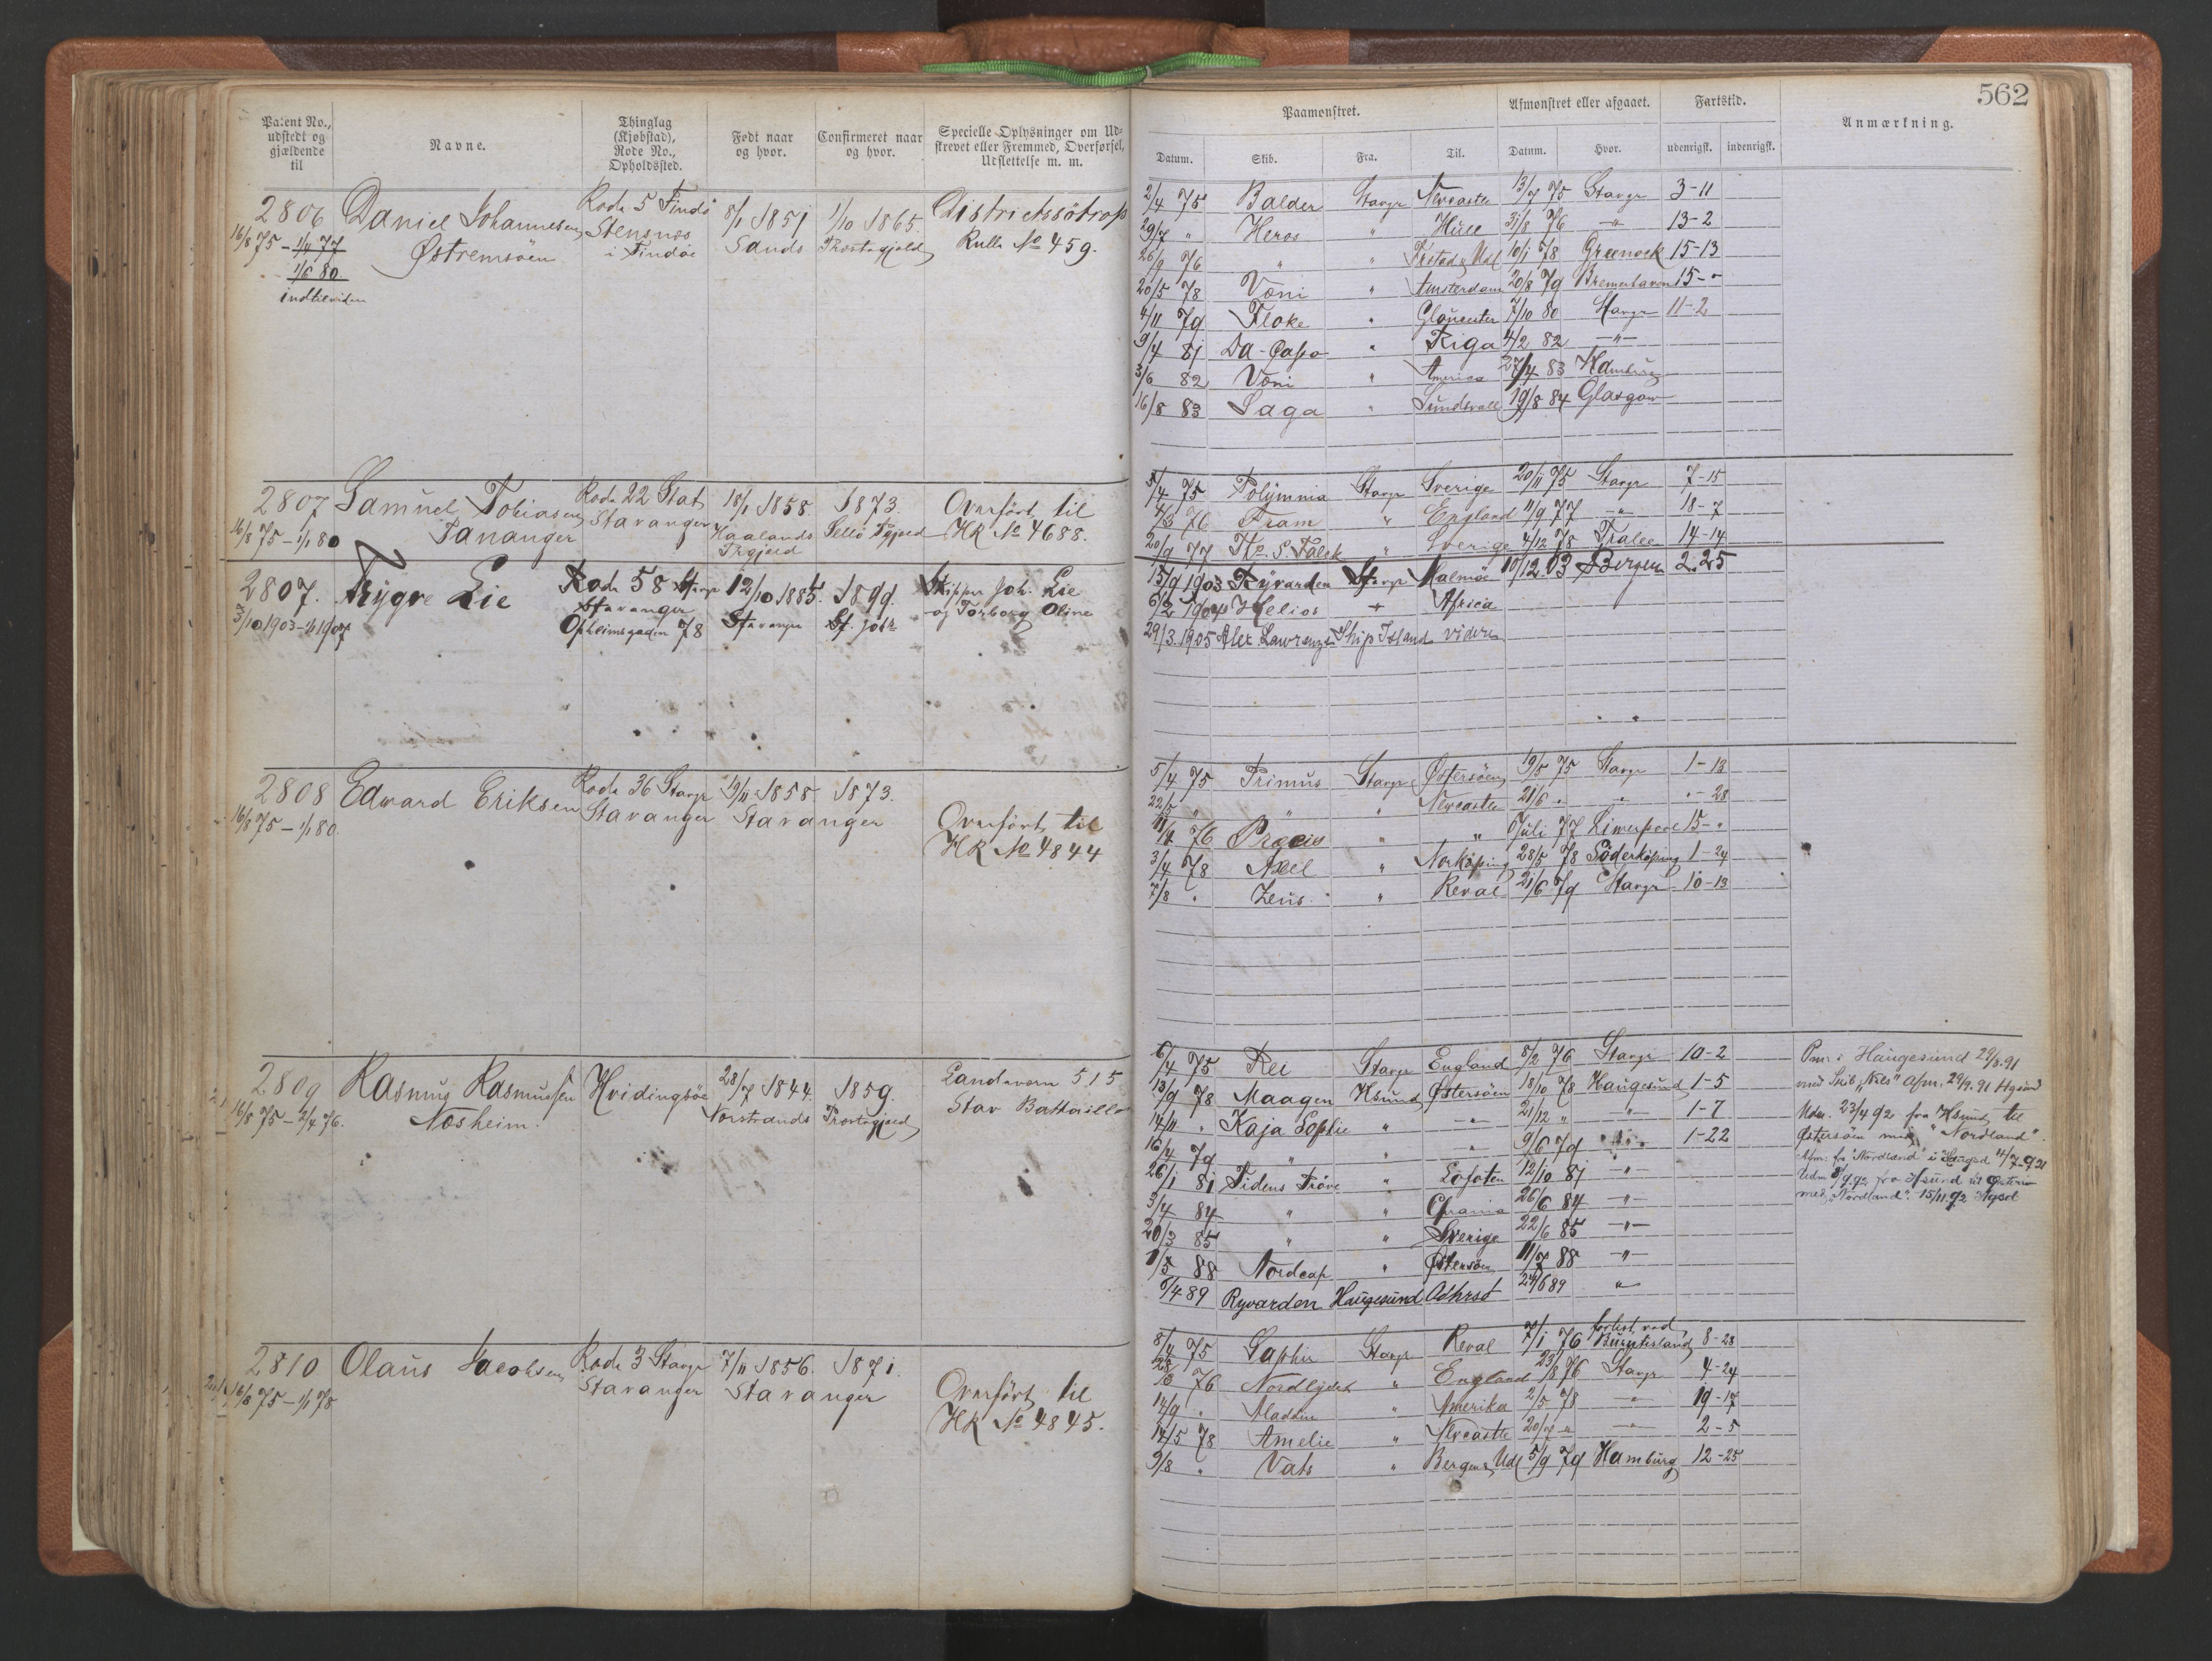 562
Patent No., udstedt og gjældende til
Navne.
Thinglag (Kjøbstad), Rode No., Opholdssted.
Født naar og hvor.
Confirmeret naar og hvor.
Specielle Oplysninger om Udskrevet eller Fremmed, Overførsel, Udslettelse m. m.
Paamønstret.
Afmønstret eller afgaaet.
Fartstid.
Anmærkning.
Datum. Skib. Fra. Til. Datum. Hvor. udenrigsk. indenrigsk.
2806 Daniel Johannesen Rode 5 Findö 8/1 1851 1/10 1865. Districtssötrop
16/8 75 - 1/4 77 Østremsöen Stensnæs Sands Prestegjeld Rulle No 459.
1/6 80. i Findöe
indtilvidere
2/4 75 Balder Stavgr Newcastle 13/7 75 Stavgr 3-11
29/7 " Heros " Hull 31/8 76 -"- 13-2
26/9 76 " " Fristad & Udl 10/1 78 Greenock 15-13
20/5 78 Voni " Amsterdam 20/8 79 Bremerhaven 15-"
4/11 79 Floke " Gloucester 7/10 80 Stavgr 11-2
9/4 81 Da-Capo " Riga 4/2 82 -"-
3/6 82 Voni " America 27/4 83 Hamburg
16/8 83 Saga " Sundsvall 19/8 84 Glasgow
2807 Samuel Tobiasen Rode 22 Stat 18/1 1858. 1873. Overført til
16/8 75 - 1/1 80 Tananger Stavanger Haalands Prgjeld HR No 4688.
5/4 75 Polymnia Stavgr Sverige 20/11 75 Stavgr 7-15
4/3 76 Fram " England 11/9 77 -"- 18-7
20/9 77 " Sverige 4/12 78 Tralee 14-14
2807. Trygve Lie Rode 58 Stavgr 12/10 1885. 1899. Skipper Joh. Lie
3/10 1903 Stavanger Stavanger St. Joh. og Torborg Oline
Opheimsgaden 78
15/9 1903 Ryvarden Stavgr Malmö 10/12 03 Bergen 2.25
6/2 1904 Helios Africa
29/3 1905 Alex. Lawrence Ship Island videre
2808 Edward Eriksen Rode 36 Stavgr 19/11 1858. 1873.
16/8 75 - 1/1 80. Stavanger Stavanger Overført til
HR No 4844
5/4 75 Primus Stavgr Østersöen 19/5 75 Stavgr 1-13
22/5 " " " Newcastle 21/6 " " "-28
76 " " Juli 77 Liverpool 15-"
3/4 78 Axel " Norköping 28/5 78 Söderköping 1-24
7/8 " Zeus " Reval 21/6 79 Stavgr 10-13
2809 Rasmus Rasmussen Hvidingsöe 28/7 1844. 1859. Landevern 515
16/8 75 - 2/4 76. Næsheim. Norstrands Prestegjeld Stav Battaillo
6/4 75 Rei Stavgr England 8/2 76 Stavgr 10-2
13/9 78 Maagen Hsund Østersöen 18/10 78 Haugesund 1-5
14/11 " Kaja Sophie " -"- 21/12 " -"- 1-7
16/4 79 " " " 9/6 79 1-22
26/1 81 Tidens Pröve " Lofoten 12/10 81 -"-
3/4 84 " " 26/6 84 -"-
20/3 85 " " Sverige 22/6 85 -"-
1/5 88 Nordcap " Østersöen 11/7 88 -"-
6/4 89 Ryvarden Haugesund 24/6 89 "
Pm: i Haugesund 22/3.91
med Skib "Næs" Afm. 29/9.91 Hgsund
Udm. 23/4 92 fra Hsund til
Østersöen med "Nordland".
Afm. fra "Nordland" i Haugsd 11/7-92
Udm 8/9 92 fra Hsund til Østersöen
med "Nordland". 15/11.92 Hgsd
2810 Olaus Jacobsen Rode 3 Stavgr 7/11 1856. 1871.
16/8 75 - 1/1 78 Stavanger Stavanger Overført til
HR No 4845.
8/4 75 Saphir Stavgr Reval 7/1 76 forlist ved Burntisland 8-28
76 Nordlyset " England 23/8 76 Stavgr 4-24
14/9 " Aladdin " Amerika 2/5 78 -"- 19-17
14/5 78 Amelie " Newcastle 20/7 " -"- 2-5
9/8 " Vats " Bergen & Udl 5/9 79 Hamburg 12-25